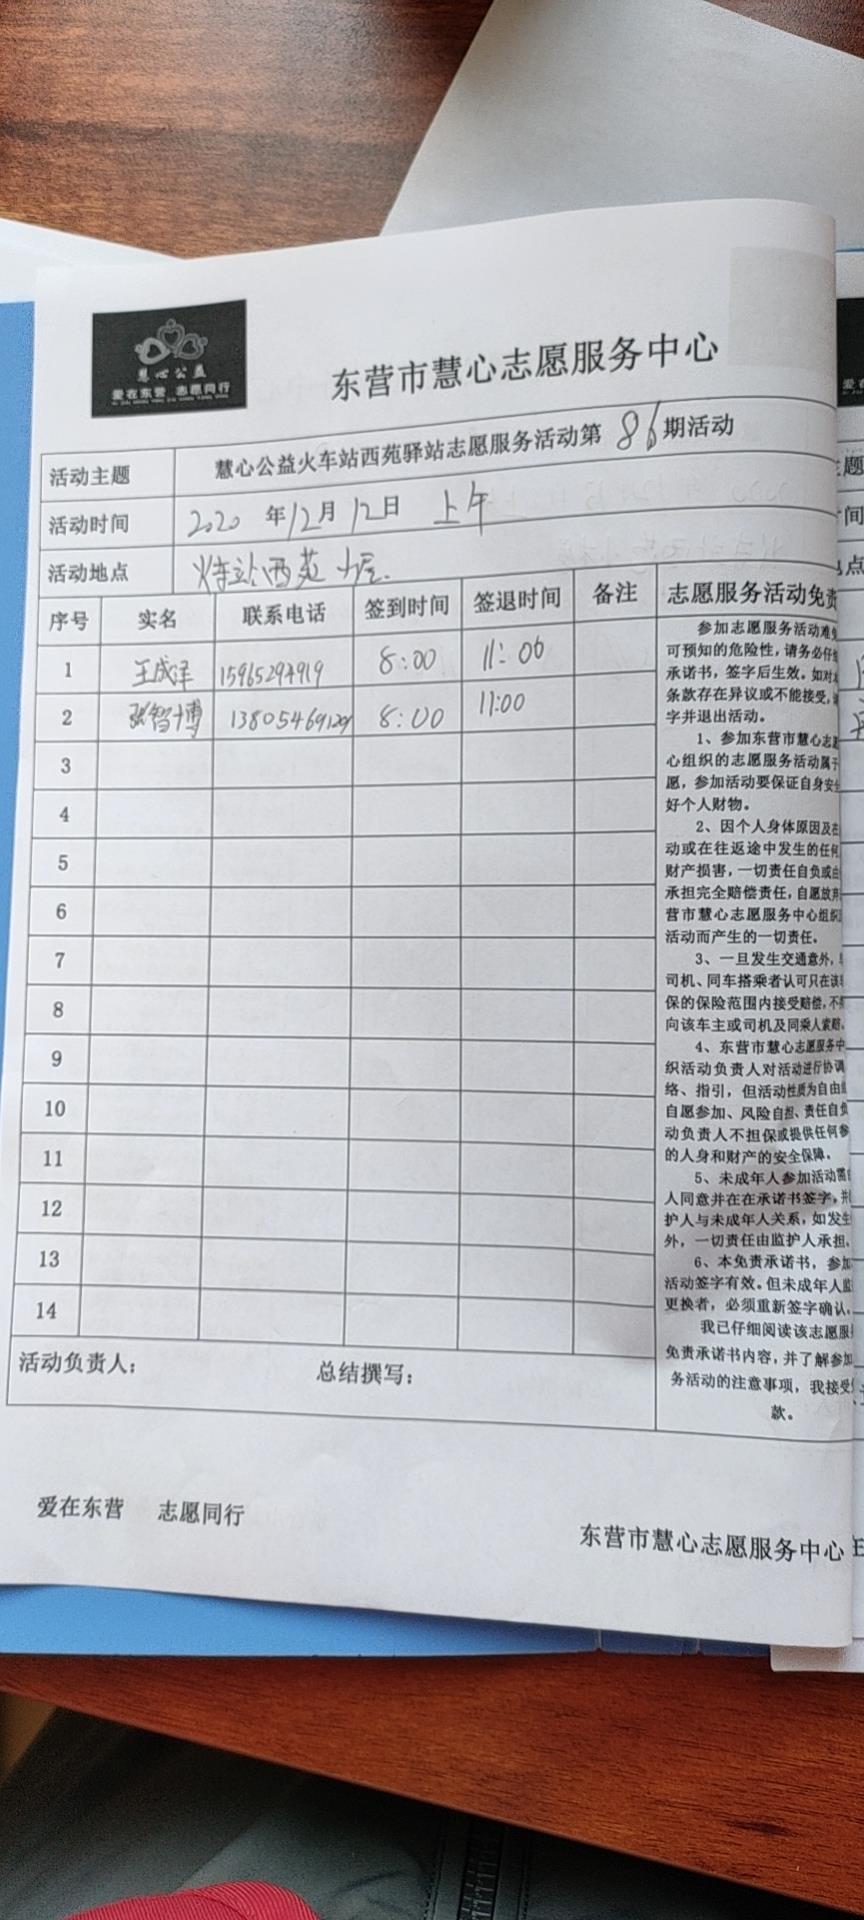 慧心公益
爱在东营 志愿同行
东营市慧心志愿服务中心
活动主题 慧心公益火车站西苑驿站志愿服务活动第86期活动
活动时间 2020年12月12日 上午
活动地点 火车站西苑
序号 实名 联系电话 签到时间 签退时间 备注
1 王成泽 15965294919 8:00 11:00
2 张智博 13805469129 8:00 11:00
3
4
5
6
7
8
9
10
11
12
13
14
活动负责人: 总结撰写:
志愿服务活动免责
参加志愿服务活动难
可预知的危险性,请务必仔
承诺书,签字后生效。如对
条款存在异议或不能接受,
字并退出活动。
1、参加东营市慧心志
心组织的志愿服务活动属于
愿,参加活动要保证自身安全
好个人财物。
2、因个人身体原因及在
动或在往返途中发生的任何
财产损害,一切责任自负或由
承担完全赔偿责任,自愿放弃
营市慧心志愿服务中心组织
活动而产生的一切责任。
3、一旦发生交通意外,
司机、同车搭乘者认可只在该
保的保险范围内接受赔偿,不
向该车主或司机及同乘人索赔。
4、东营市慧心志愿服务中
织活动负责人对活动进行协调
络、指引,但活动性质为自由
自愿参加、风险自担、责任自负
动负责人不担保或提供任何参
的人身和财产的安全保障。
5、未成年人参加活动需
人同意并在在承诺书签字,并
护人与未成年人关系,如发生
外,一切责任由监护人承担。
6、本免责承诺书,参加
活动签字有效。但未成年人监
更换者,必须重新签字确认。
我已仔细阅读该志愿服
免责承诺书内容,并了解参加
务活动的注意事项,我接受
款。
爱在东营 志愿同行
东营市慧心志愿服务中心